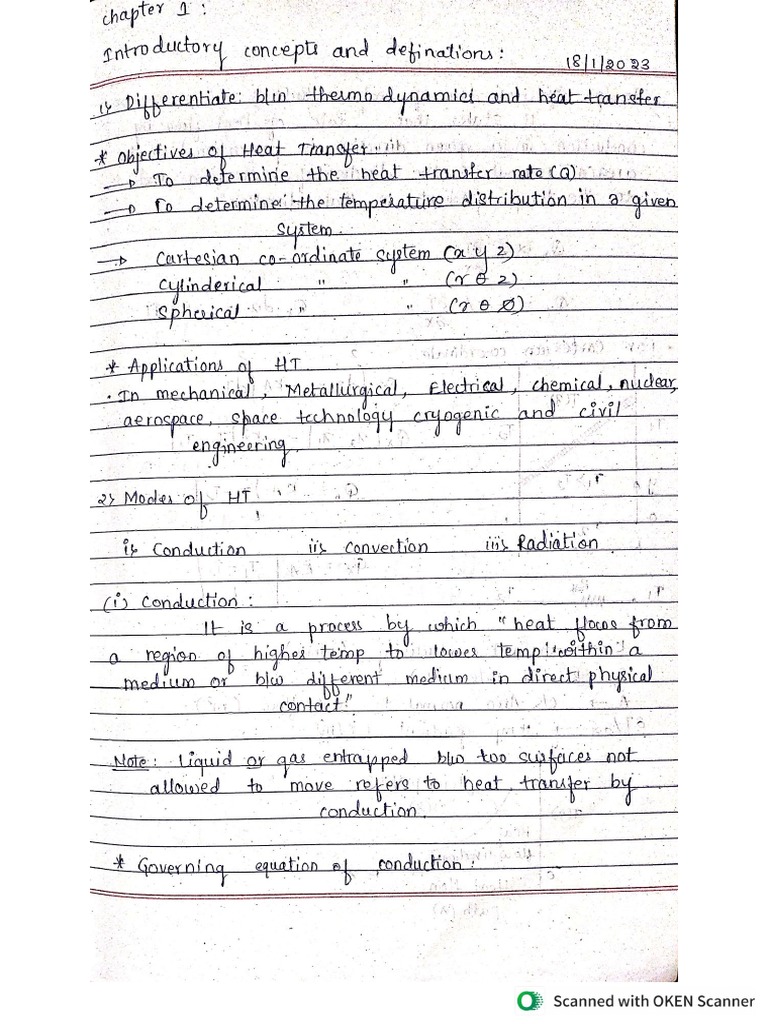 chapter 1 :
Introductory concepts and definations : 18/1/2023
1) Differentiate: b/w thermo dynamics and heat transfer
* Objectives of Heat Transfer
→ To determine the heat transfer rate (Q)
→ To determine the temperature distribution in a given
system.
→ Cartesian co-ordinate system (x y z)
Cylinderical " " (r θ z)
Spherical " " (r θ Ø)
* Applications of HT
. In mechanical, Metallurgical, Electrical, chemical, nuclear,
aerospace, space technology cryogenic and civil
engineering.
2) Modes of HT
i) Conduction ii) Convection iii) Radiation
(i) Conduction :
It is a process by which "heat flows from
a region of higher temp to lower temp within a
medium or b/w different medium in direct physical
contact"
Note: Liquid or gas entrapped b/w two surfaces not
allowed to move refers to heat transfer by
conduction.
* Governing equation of conduction :
Scanned with OKEN Scanner